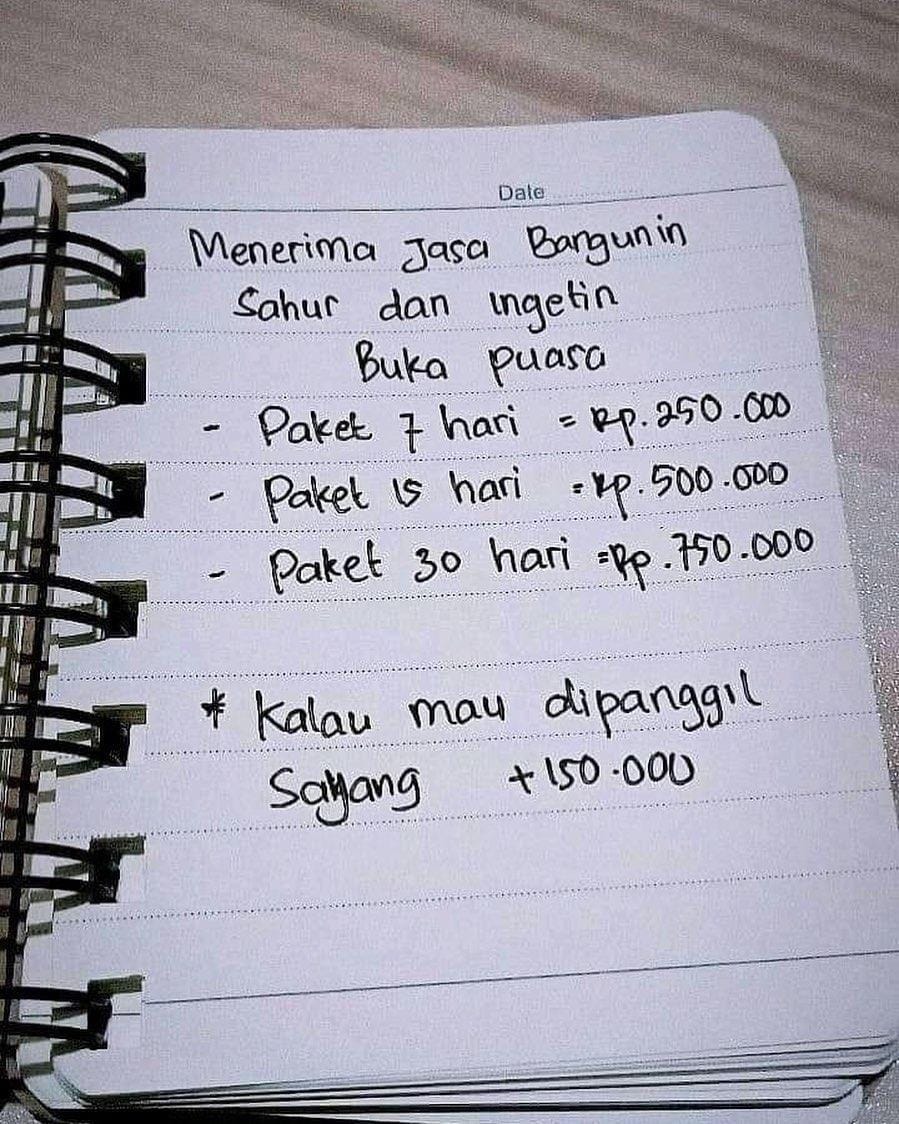 Date
Menerima Jasa Bangunin
Sahur dan Ingetin
Buka puasa
- Paket 7 hari = Rp.250.000
- Paket 15 hari = Rp.500.000
- Paket 30 hari = Rp.750.000
* Kalau mau dipanggil
Sayang +150.000